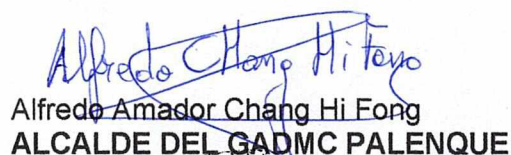 Alfredo Chang Hi Fong
Alfredo Amador Chang Hi Fong
ALCALDE DEL GADMC PALENQUE